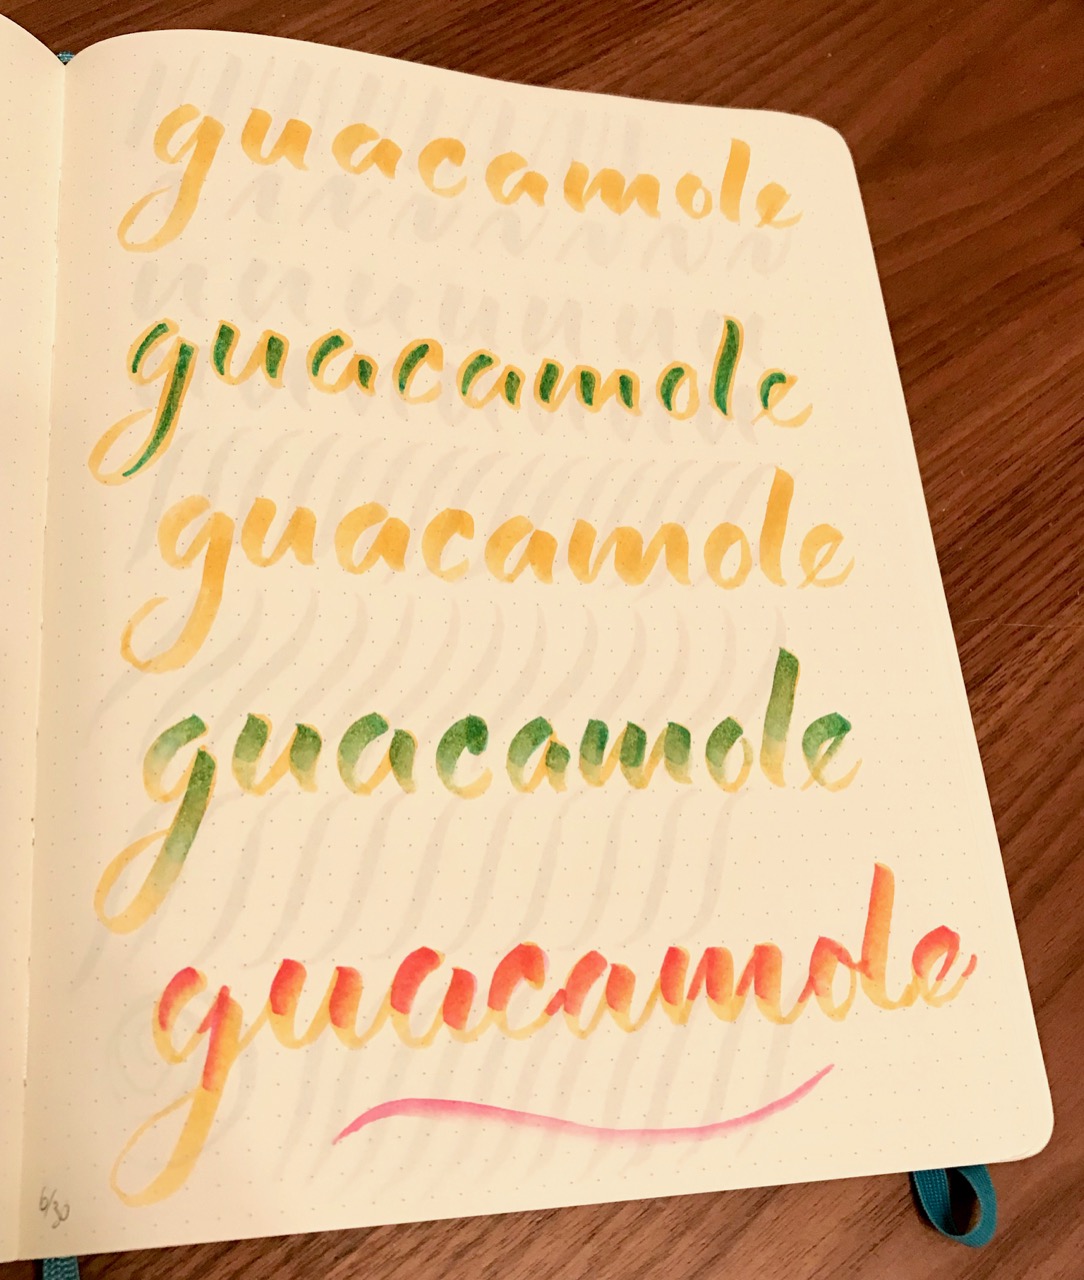 guacamole
guacamole
guacamole
guacamole
guacamole
6/30